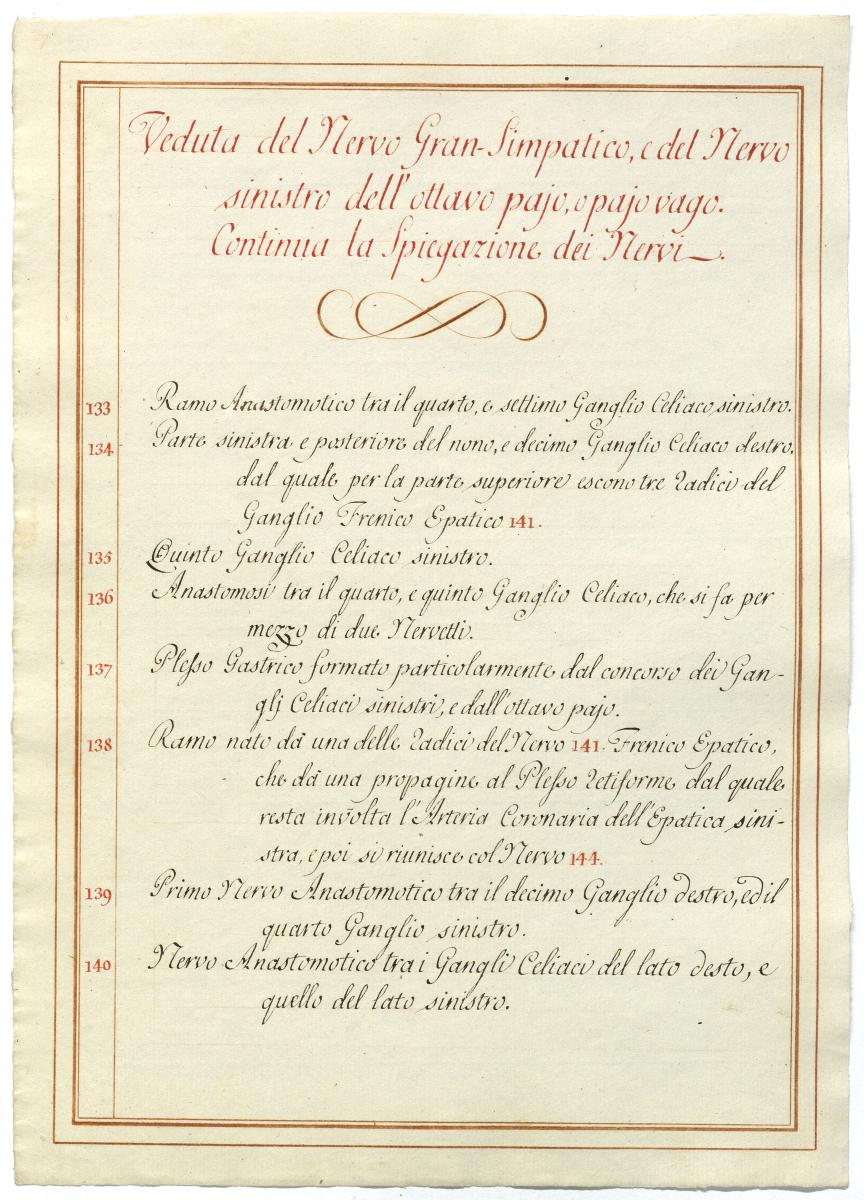 Veduta del Nervo Gran-Simpatico, e del Nervo
sinistro dell'ottavo pajo, o pajo vago.
Continua la Spiegazione dei Nervi.
133 Ramo Anastomotico tra il quarto, e settimo Ganglio Celiaco sinistro.
134 Parte sinistra e posteriore del nono, e decimo Ganglio Celiaco destro,
dal quale per la parte superiore escono tre radici del
Ganglio Frenico Epatico 141.
135 Quinto Ganglio Celiaco sinistro.
136 Anastomosi tra il quarto, e quinto Ganglio Celiaco, che si fa per
mezzo di due Nervetti.
137 Plesso Gastrico formato particolarmente dal concorso dei Gan-
glj Celiaci sinistri, e dall'ottavo pajo.
138 Ramo nato dà una delle radici del Nervo 141. Frenico Epatico,
che dà una propagine al Plesso retiforme dal quale
resta involta l'Arteria Coronaria dell'Epatica sini-
stra, e poi si riunisce col Nervo 144.
139 Primo Nervo Anastomotico tra il decimo Ganglio destro, ed il
quarto Ganglio sinistro.
140 Nervo Anastomotico tra i Gangli Celiaci del lato desto, e
quello del lato sinistro.